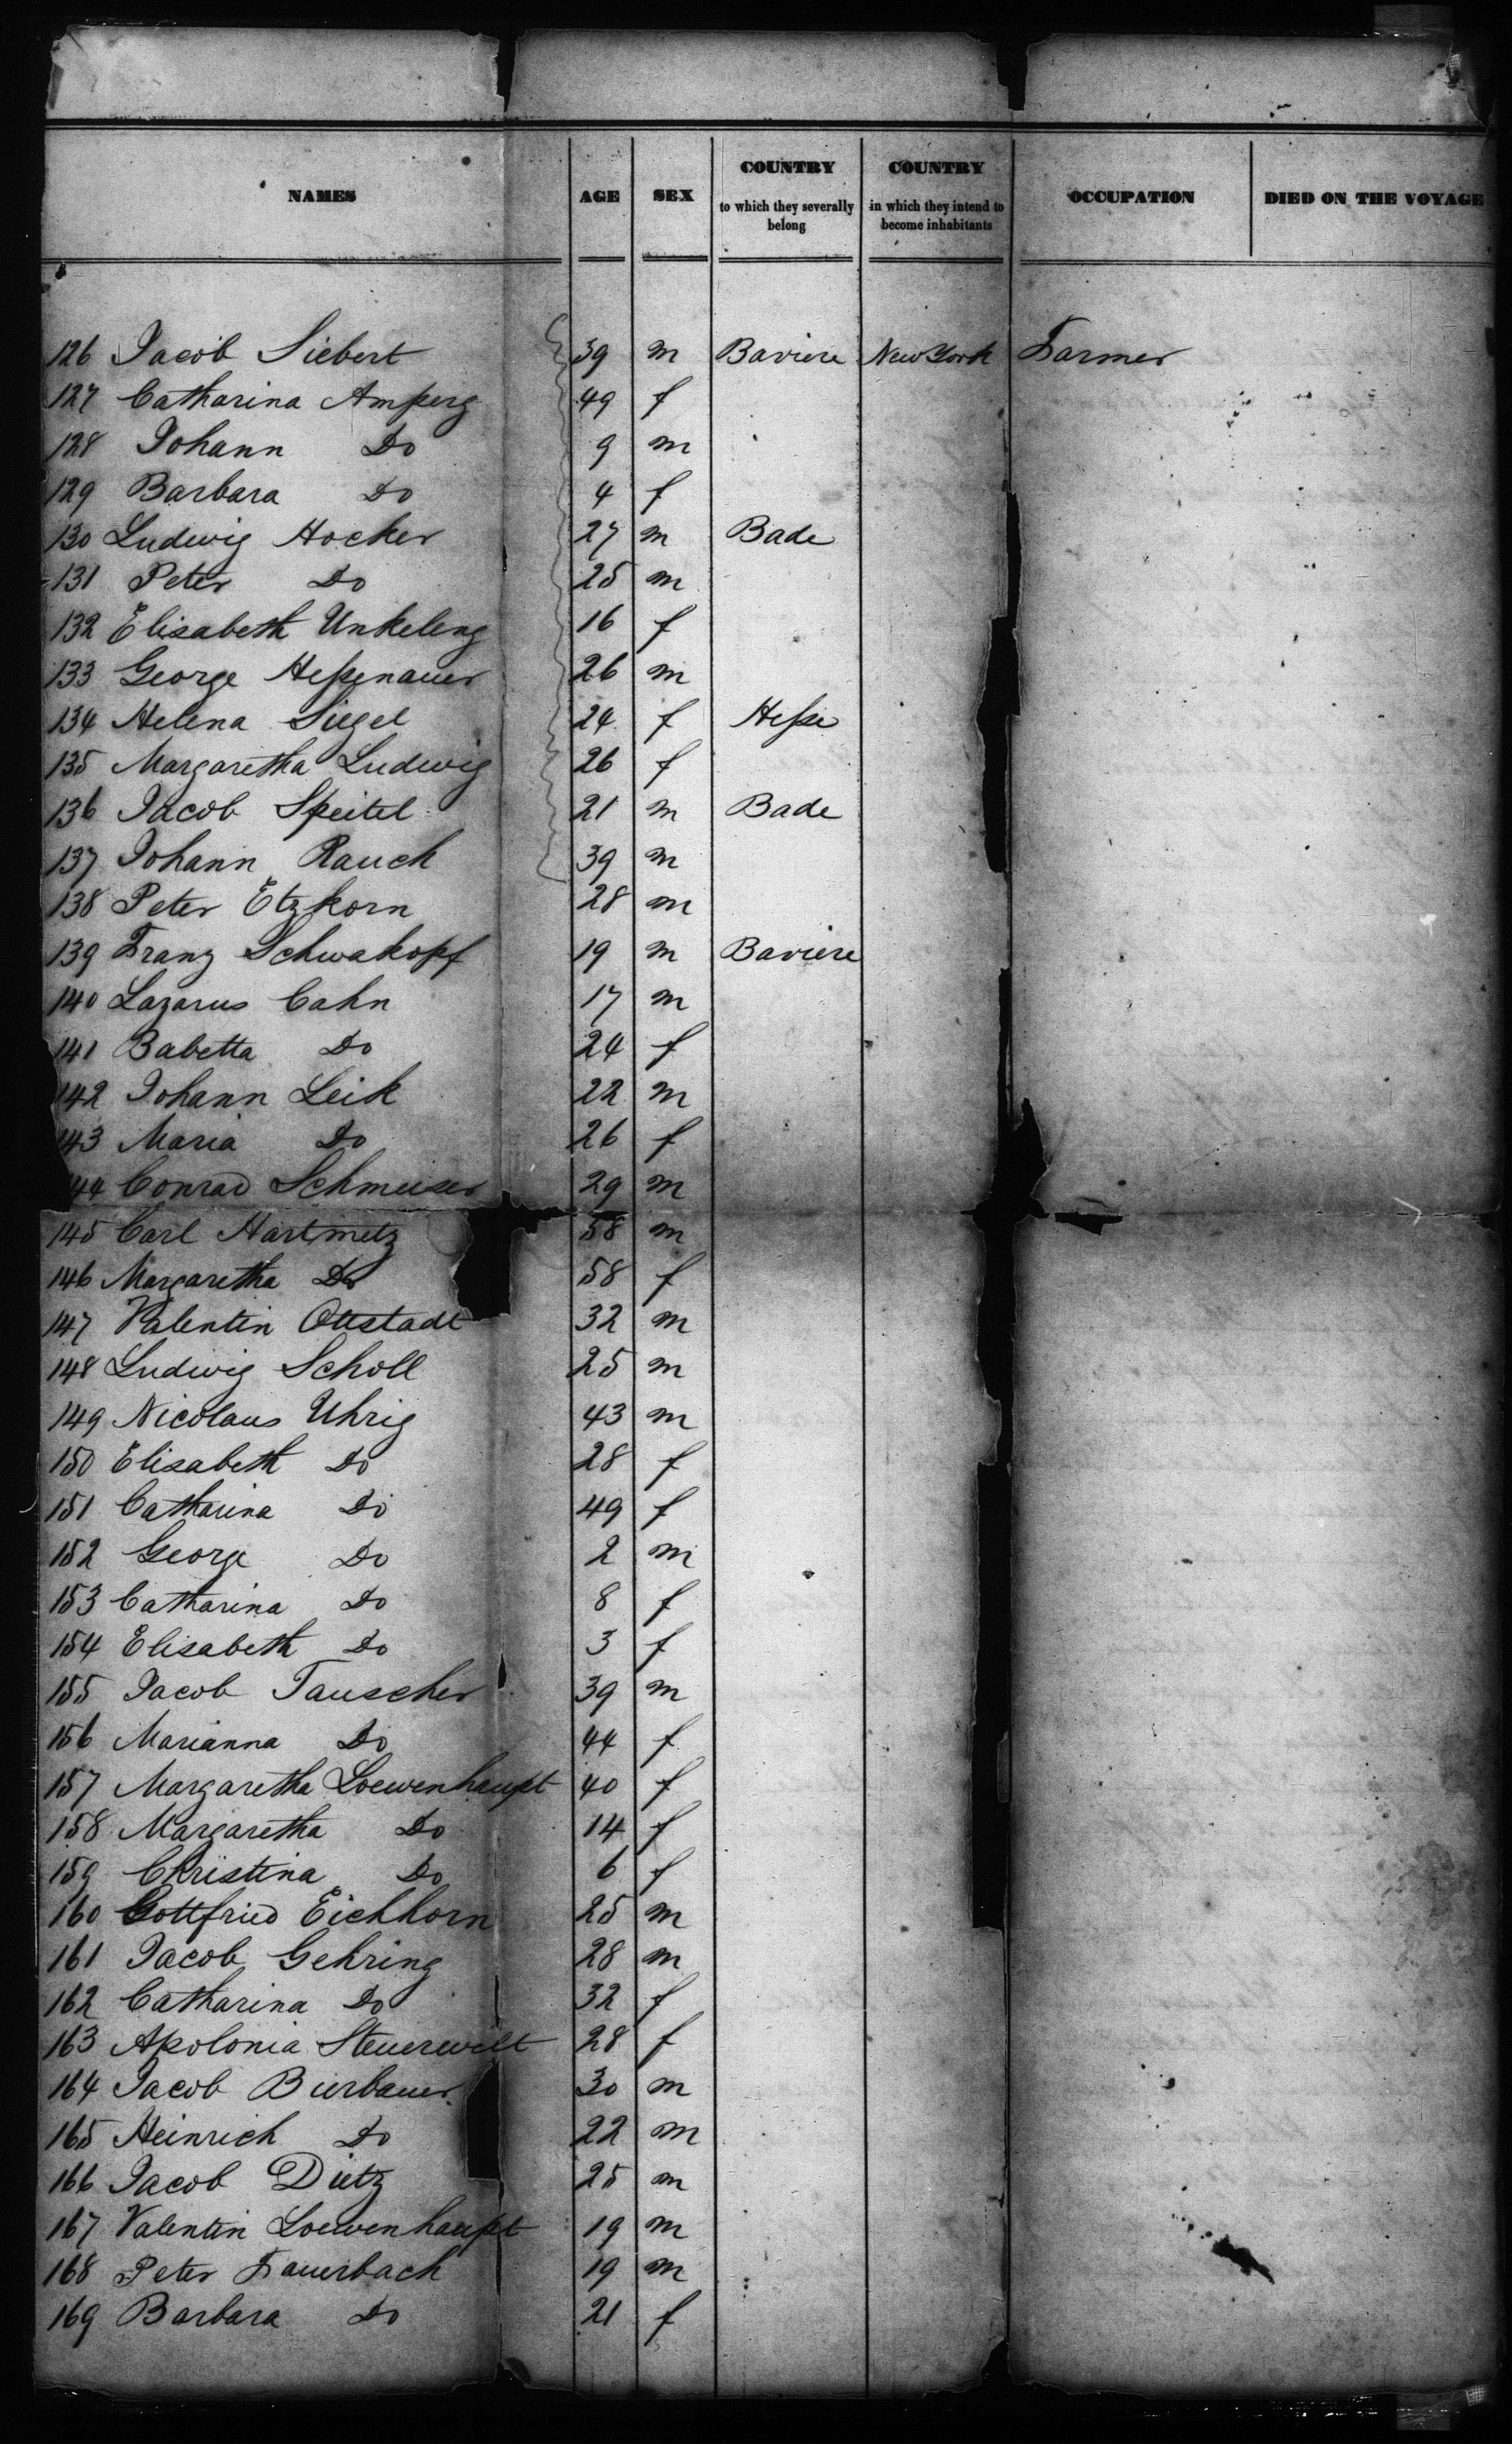 NAMES AGE SEX COUNTRY to which they severally belong COUNTRY in which they intend to become inhabitants OCCUPATION DIED ON THE VOYAGE
126 Jacob Siebert 39 m Baviere New York Farmer
127 Catharina Amperg 49 f
128 Johann Do 9 m
129 Barbara Do 4 f
130 Ludwig Hocker 27 m Bade
131 Peter Do 25 m
132 Elisabeth Unkeleng 16 f
133 George Heßenauer 26 m
134 Helena Siegel 24 f Heßse
135 Margaretha Ludwig 26 f
136 Jacob Speitel 21 m Bade
137 Johann Rauch 39 m
138 Peter Etzkorn 28 m
139 Franz Schwakopf 19 m Baviere
140 Lazarus Cahn 17 m
141 Babetta Do 24 f
142 Johann Leik 22 m
143 Maria Do 26 f
144 Conrad Schmeiser 29 m
145 Carl Hartmetz 58 m
146 Margaretha Do 58 f
147 Valentin Ottstadt 32 m
148 Ludwig Scholl 25 m
149 Nicolaus Uhrig 43 m
150 Elisabeth Do 28 f
151 Catharina Do 49 f
152 George Do 2 m
153 Catharina Do 8 f
154 Elisabeth Do 3 f
155 Jacob Tauscher 39 m
156 Marianna Do 44 f
157 Margaretha Loewenhaupt 40 f
158 Margaretha Do 14 f
159 Christina Do 6 f
160 Gottfried Eichhorn 25 m
161 Jacob Gehring 28 m
162 Catharina Do 32 f
163 Apolonia Steuerwelt 28 f
164 Jacob Bierbauer 30 m
165 Heinrich Do 22 m
166 Jacob Dietz 25 m
167 Valentin Loewenhaupt 19 m
168 Peter Fauerbach 19 m
169 Barbara Do 21 f